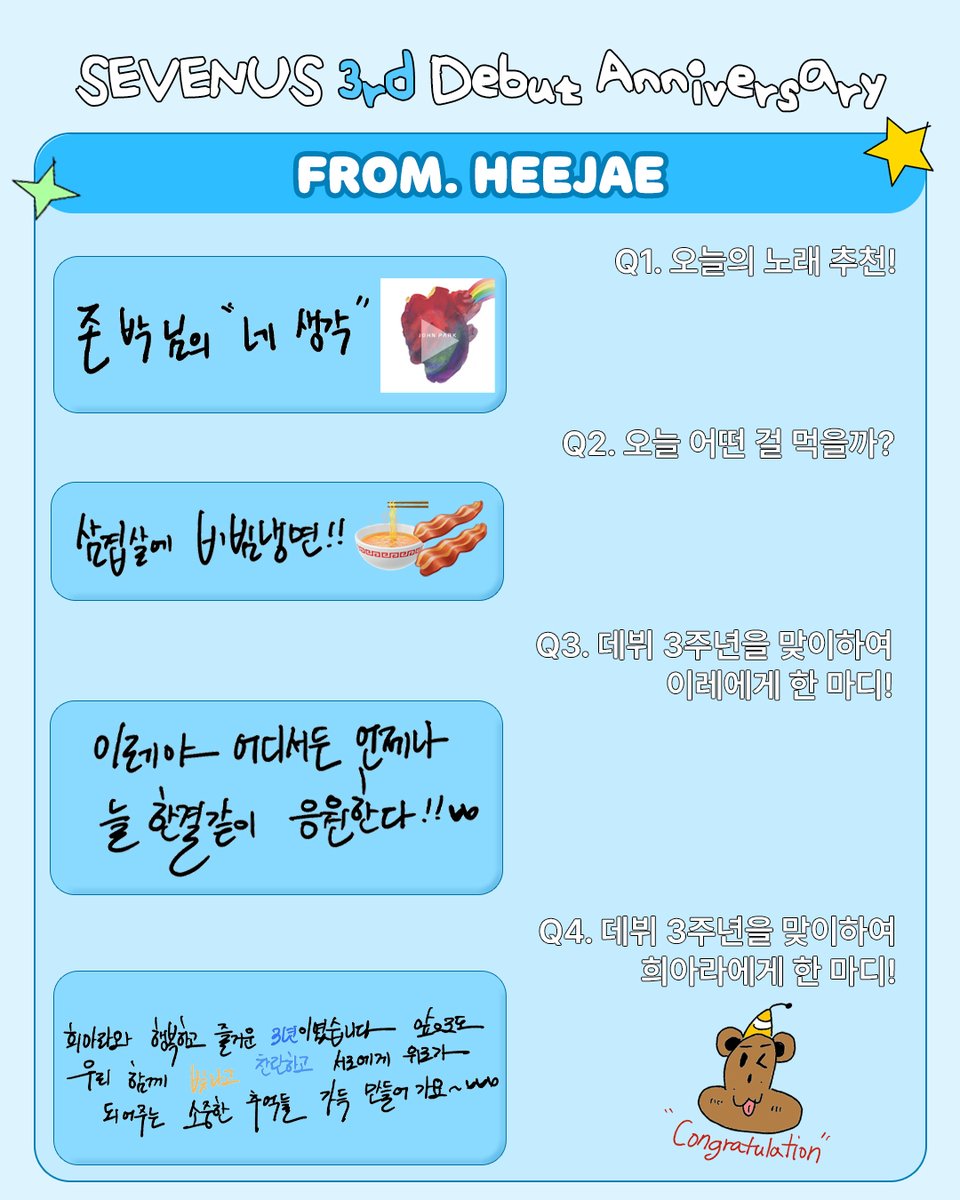 SEVENUS 3rd Debut Anniversary
FROM. HEEJAE
Q1. 오늘의 노래 추천!
존박님의 "네 생각"
JOHN PARK
Q2. 오늘 어떤 걸 먹을까?
삼겹살에 비빔냉면!!
Q3. 데뷔 3주년을 맞이하여
이레에게 한 마디!
이레야ㅡ 어디서든 언제나
늘 한결같이 응원한다!!
Q4. 데뷔 3주년을 맞이하여
희아라에게 한 마디!
희아라와 행복하고 즐거운 3년이었습니다ㅡ 앞으로도
우리 함께 빛나고 찬란하고 서로에게 위로가ㅡ
되어주는 소중한 추억들 가득 만들어 가요~
"Congratulation"